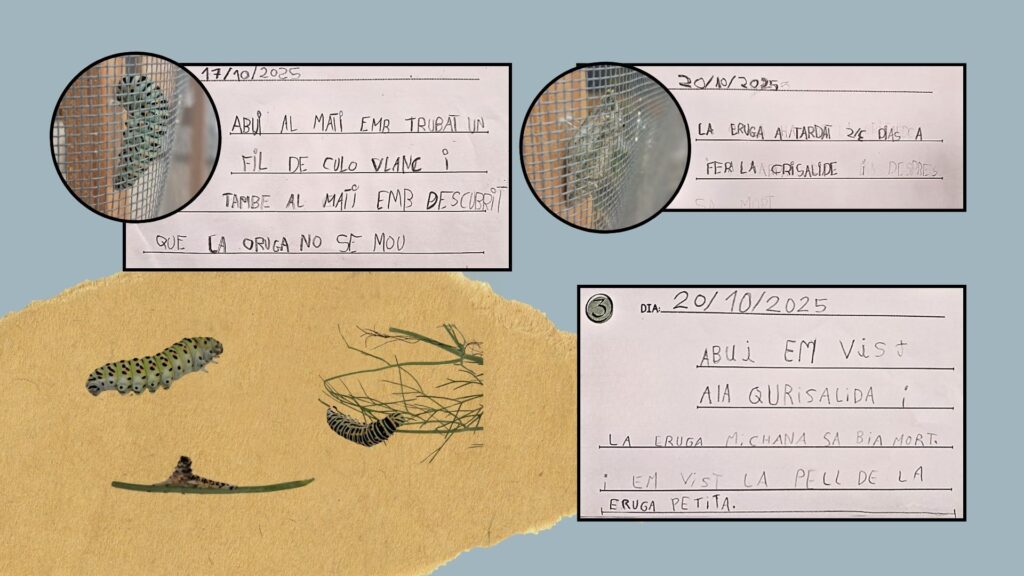 17/10/2025
ABUI AL MATI EMB TRUBAT UN
FIL DE CULO VLANC i
TAMBE AL MATI EMB DESCUBRIT
QUE LA ORUGA NO SE MOU
20/10/2025
LA ERUGA A TARDAT DIAS A
FER LA CRISALIDE i DESPRES
SA MORT
3 DIA: 20/10/2025
ABUi EM ViST
AIA QURiSALiDA i
LA ERUGA MiCHANA SA BiA MORT.
i EM ViST LA PELL DE LA
ERUGA PETiTA.